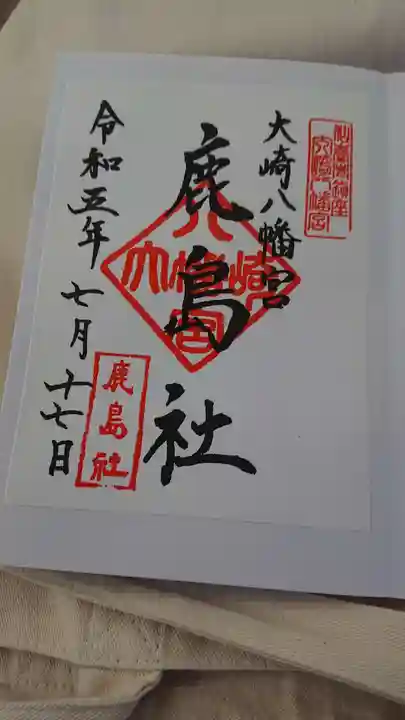 大崎八幡宮
鹿島社
令和五年七月十七日
鹿島社
大崎八幡宮